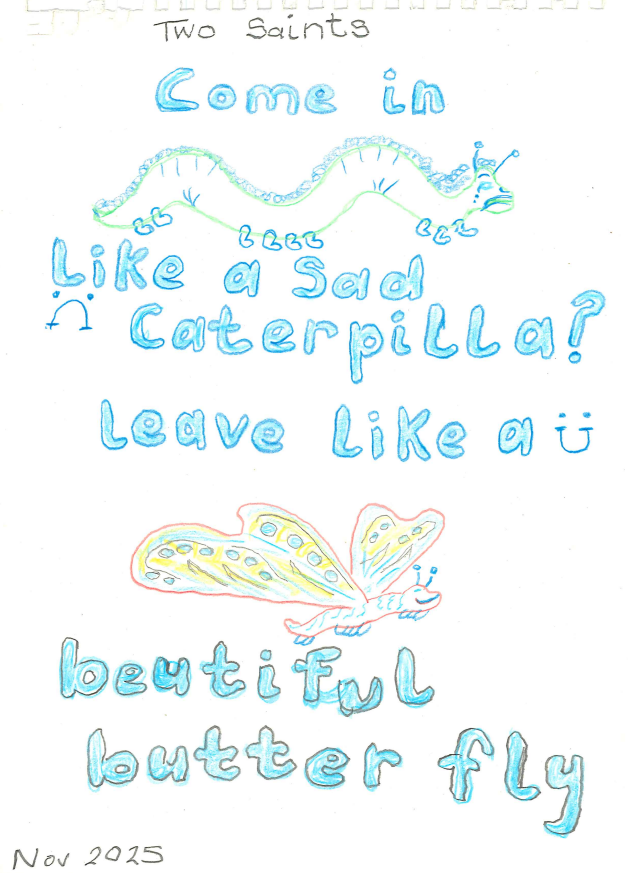 Two Saints
Come in
Like a Sad
Caterpilla?
Leave Like a
beutiful
butter fly
Nov 2025